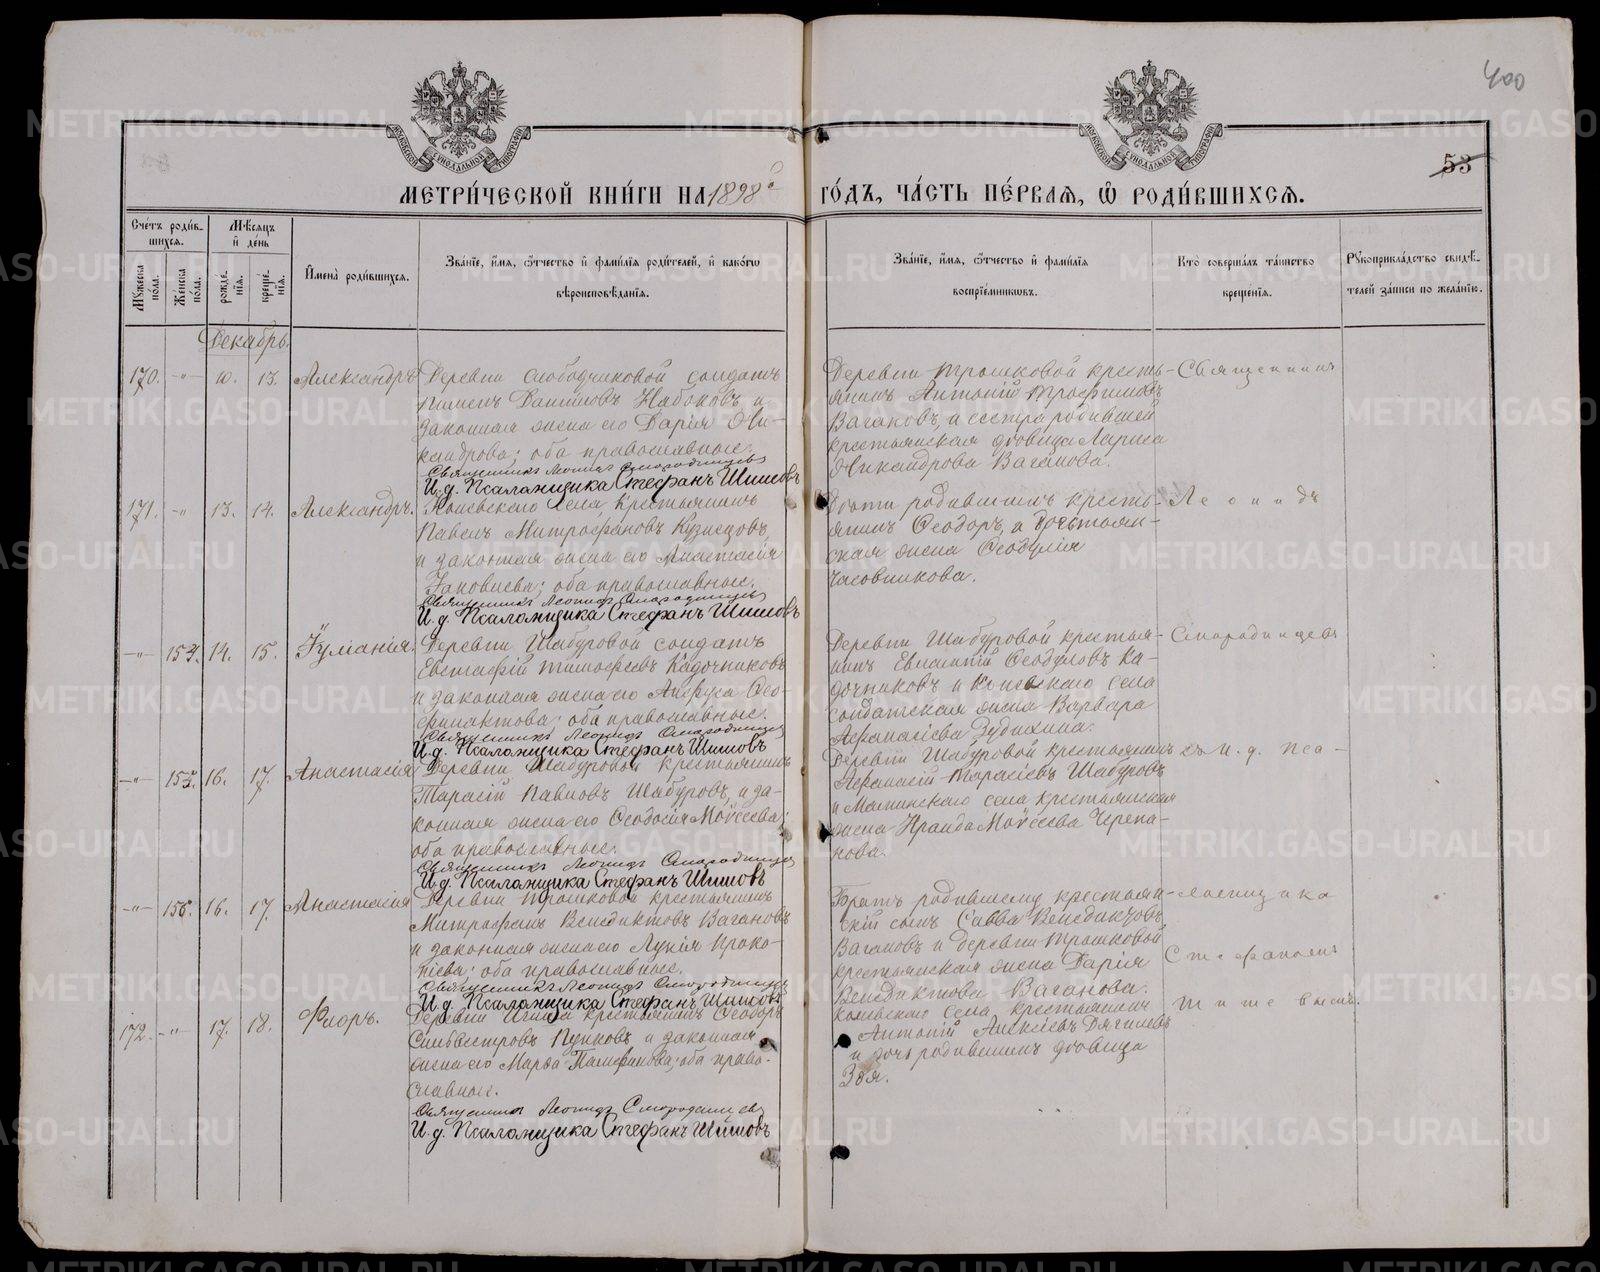 400
53
МЕТРИ́ЧЕСКОЙ КНИ́ГИ НА 1898й ГО́ДЪ, ЧА́СТЬ ПЕ́РВАѦ, Ѡ҆ РОДИ́ВШИХСѦ.
Сче́тъ роди́в-
шихся.
Мѣ́сяцъ
и҆ де́нь
Мꙋ́жеска
по́ла.
Же́нска
по́ла.
рожде́-
нїя.
креще́-
нїя.
И҆мена̀ роди́вшихся.
Зва́нїе, и҆́мя, ѻ҆́тчество и҆ фами́лїя роди́телей, и҆ како́гѡ
вѣроисповѣ́данїя.
Зва́нїе, и҆́мя, ѻ҆́тчество и҆ фами́лїя
воспрїе́мникѡвъ.
Кто̀ соверша́лъ та́инство
креще́нїя.
Рꙋкоприкла́дство свидѣ́-
телей за́писи по жела́нїю.
Декабрь.
170. -"- 10. 13. Александръ
Деревни Слободчиковой солдатъ
Пименъ Даниловъ Набоковъ и
законная жена его Дарія Ни-
кандрова; оба православные.
Священникъ Леонидъ Смородинцевъ
И. д. Псаломщика Стефанъ Шишовъ
Деревни Трошковой кресть-
янинъ Антоній Трофимовъ
Вагановъ, и сестра родившей
крестьянская вдовица Лариса
Никандрова Ваганова.
Священникъ
171. -"- 13. 14. Александръ.
села, крестьянинъ
Павелъ Митрофановъ Кузнецовъ,
и законная жена его Анастасія
Іаковлева; оба православные.
Священникъ Леонидъ Смородинцевъ
И. д. Псаломщика Стефанъ Шишовъ
родившимъ кресть-
янинъ Ѳеодоръ, а
ская жена
Часовникова.
Леонидъ
-"- 154. 14. 15. Іуліанія.
Деревни Шабуровой солдатъ
Евстафій Тимофеевъ Кадочниковъ
и законная жена его Анфуса Ѳео-
филактова; оба православные.
Священникъ Леонидъ Смородинцевъ
И. д. Псаломщика Стефанъ Шишовъ
Деревни Шабуровой крестья-
нинъ Евлампій Ѳеодуловъ Ка-
дочниковъ и села
солдатская жена Варвара
Аѳанасіева
Смородинцевъ
-"- 155. 16. 17. Анастасія
Деревни Шабуровой крестьянинъ
Тарасій Павловъ Шабуровъ, и за-
конная жена его Ѳеодосія Моѵсеева;
оба православные.
Священникъ Леонидъ Смородинцевъ
И. д. Псаломщика Стефанъ Шишовъ
Деревни Шабуровой крестьянинъ
Аѳанасій Тарасіевъ Шабуровъ
и Маминскаго села крестьянская
жена Ираида Моѵсеева Черепа-
нова.
съ и. д. Пса-
-"- 156. 16. 17. Анастасія
Деревни Трошковой крестьянинъ
Митрофанъ Венедиктовъ Вагановъ
и законная жена его Лукія Проко-
піева; оба православные.
Священникъ Леонидъ Смородинцевъ
И. д. Псаломщика Стефанъ Шишовъ
Братъ родившему крестьян-
скій сынъ Савва Венедиктовъ
Вагановъ и деревни Трошковой
крестьянская жена Дарія
Венедиктова Ваганова.
ломщика
Стефаномъ
172. -"- 17. 18. Флоръ.
Деревни крестьянинъ Ѳеодоръ
Сильвестровъ Пупковъ и законная
жена его Марѳа Памфилова; оба право-
славные.
Священникъ Леонидъ Смородинцевъ
И. д. Псаломщика Стефанъ Шишовъ
села крестьянинъ
Антоній Алексіевъ Дягилевъ
и дочь родившимъ вдовица
Зоя.
Шишовымъ.